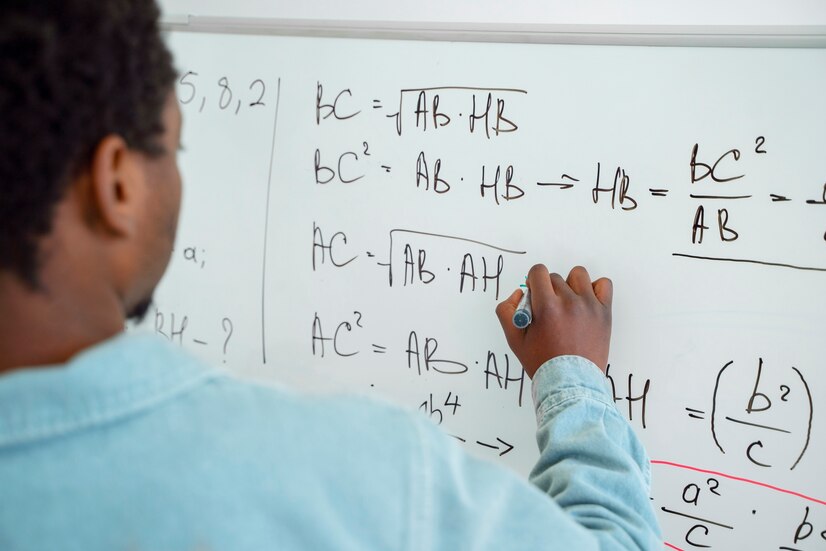 5, 8, 2
a;
BH - ?
BC = √AB · HB
BC² = AB · HB → HB = BC² / AB =
AC = √AB · AH
AC² = AB · AH
AH = (b² / c)
b⁴
→
a² / c · b